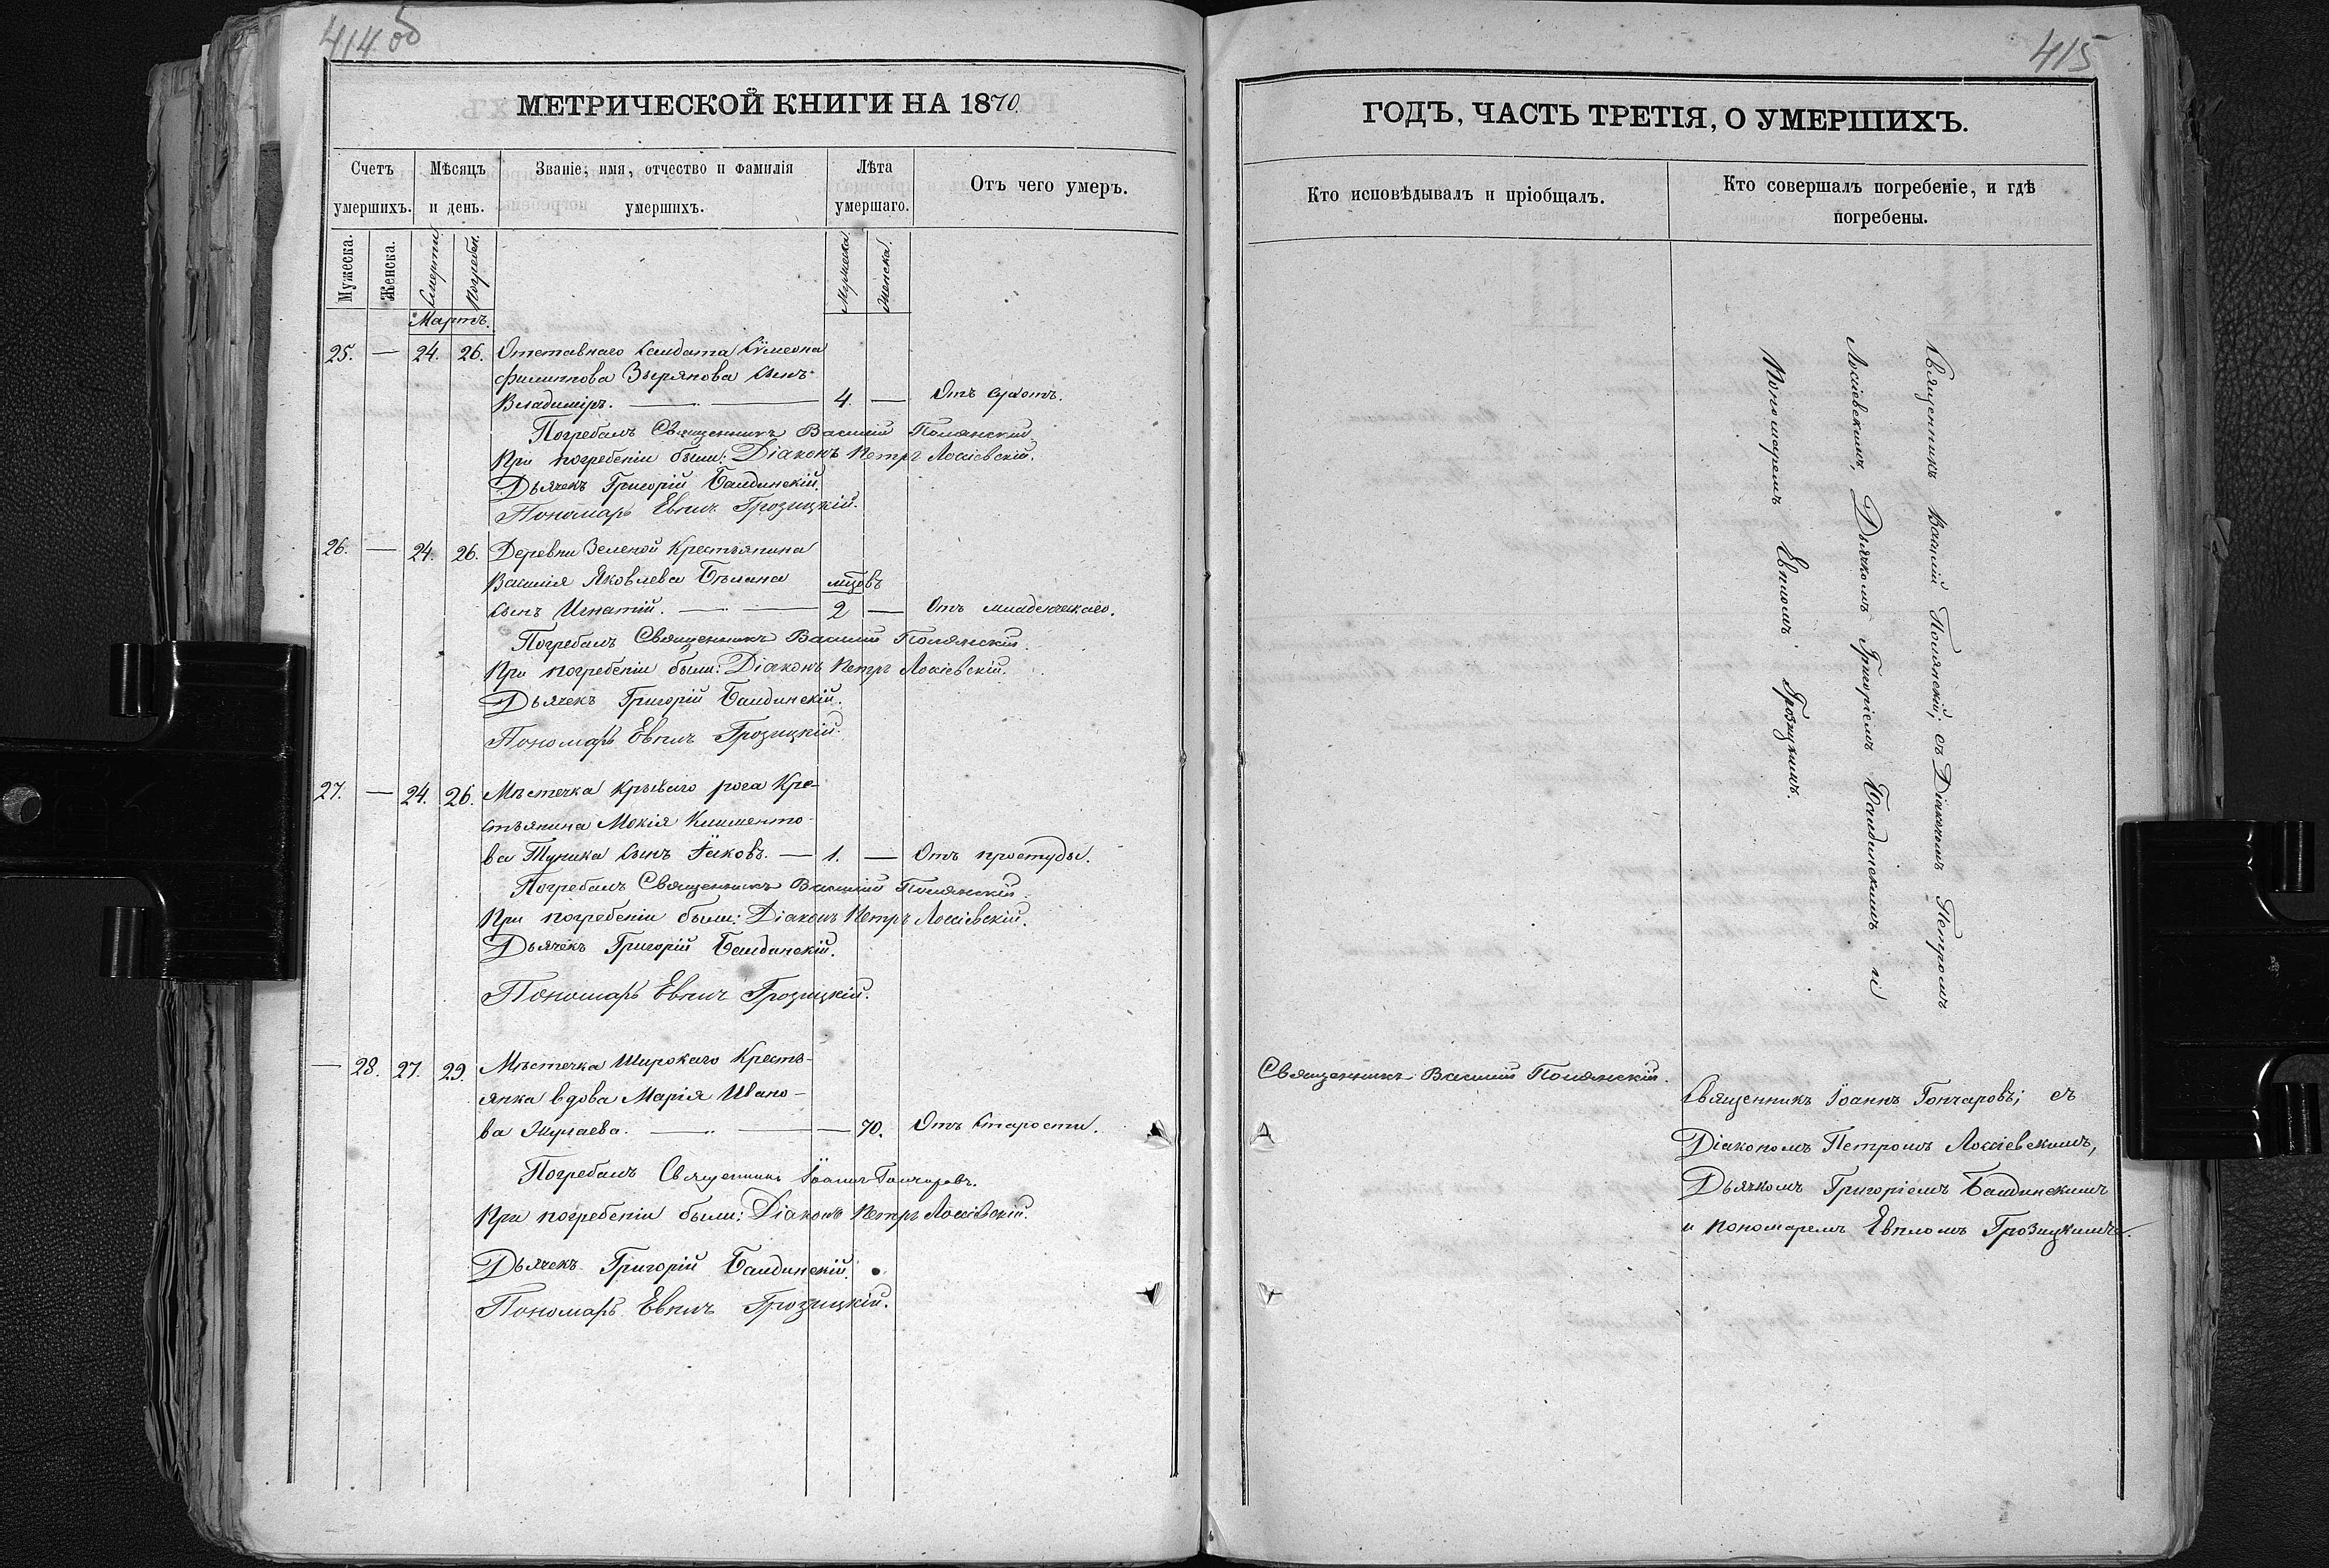 414 об
МЕТРИЧЕСКОЙ КНИГИ НА 1870.
Счетъ умершихъ.
Мѣсяцъ и день.
Званіе, имя, отчество и фамилія умершихъ.
Лѣта умершаго.
Отъ чего умеръ.
Мужеска.
Женска.
Смерти
Погребен.
Мужеска.
Женска.
Мартъ.
25. — 24. 26. Отставнаго Солдата Сѵмеона
Филиппова Зырянова сынъ
Владиміръ. — 4. — Отъ сухотъ.
Погребалъ Священникъ Василій Полянскій.
При погребеніи были: Діаконъ Петръ Лосіевскій.
Дьячекъ Григорій Балдинскій.
Пономарь Евплъ Грозицкій.
26. — 24. 26. Деревни Зеленой Крестьянина
Василія Яковлева Бѣлана мцовъ
сынъ Игнатій. — 2 — Отъ младенческаго.
Погребалъ Священникъ Василій Полянскій.
При погребеніи были: Діаконъ Петръ Лосіевскій.
Дьячекъ Григорій Балдинскій.
Пономарь Евплъ Грозицкій.
27. — 24. 26. Мѣстечка Криваго рога Кре-
стьянина Мокія Клименто-
ва Тупика сынъ Іаковъ. — 1. — Отъ простуды.
Погребалъ Священникъ Василій Полянскій.
При погребеніи были: Діаконъ Петръ Лосіевскій.
Дьячекъ Григорій Балдинскій.
Пономарь Евплъ Грозицкій.
— 28. 27. 29. Мѣстечка Широкаго Кресть-
янка вдова Марія Ивано-
ва — 70. Отъ старости.
Погребалъ Священникъ Іоаннъ Гончаровъ.
При погребеніи были: Діаконъ Петръ Лосіевскій.
Дьячекъ Григорій Балдинскій.
Пономарь Евплъ Грозицкій.
415
ГОДЪ, ЧАСТЬ ТРЕТІЯ, О УМЕРШИХЪ.
Кто исповѣдывалъ и пріобщалъ.
Кто совершалъ погребеніе, и гдѣ
погребены.
Священникъ Василій Полянскій; съ Діакономъ Петромъ
Лосіевскимъ, Дьячкомъ Григоріемъ Балдинскимъ и
Пономаремъ Евпломъ Грозицкимъ.
Священникъ Василій Полянскій.
Священникъ Іоаннъ Гончаровъ; съ
Діакономъ Петромъ Лосіевскимъ,
Дьячкомъ Григоріемъ Балдинскимъ
и пономаремъ Евпломъ Грозицкимъ.